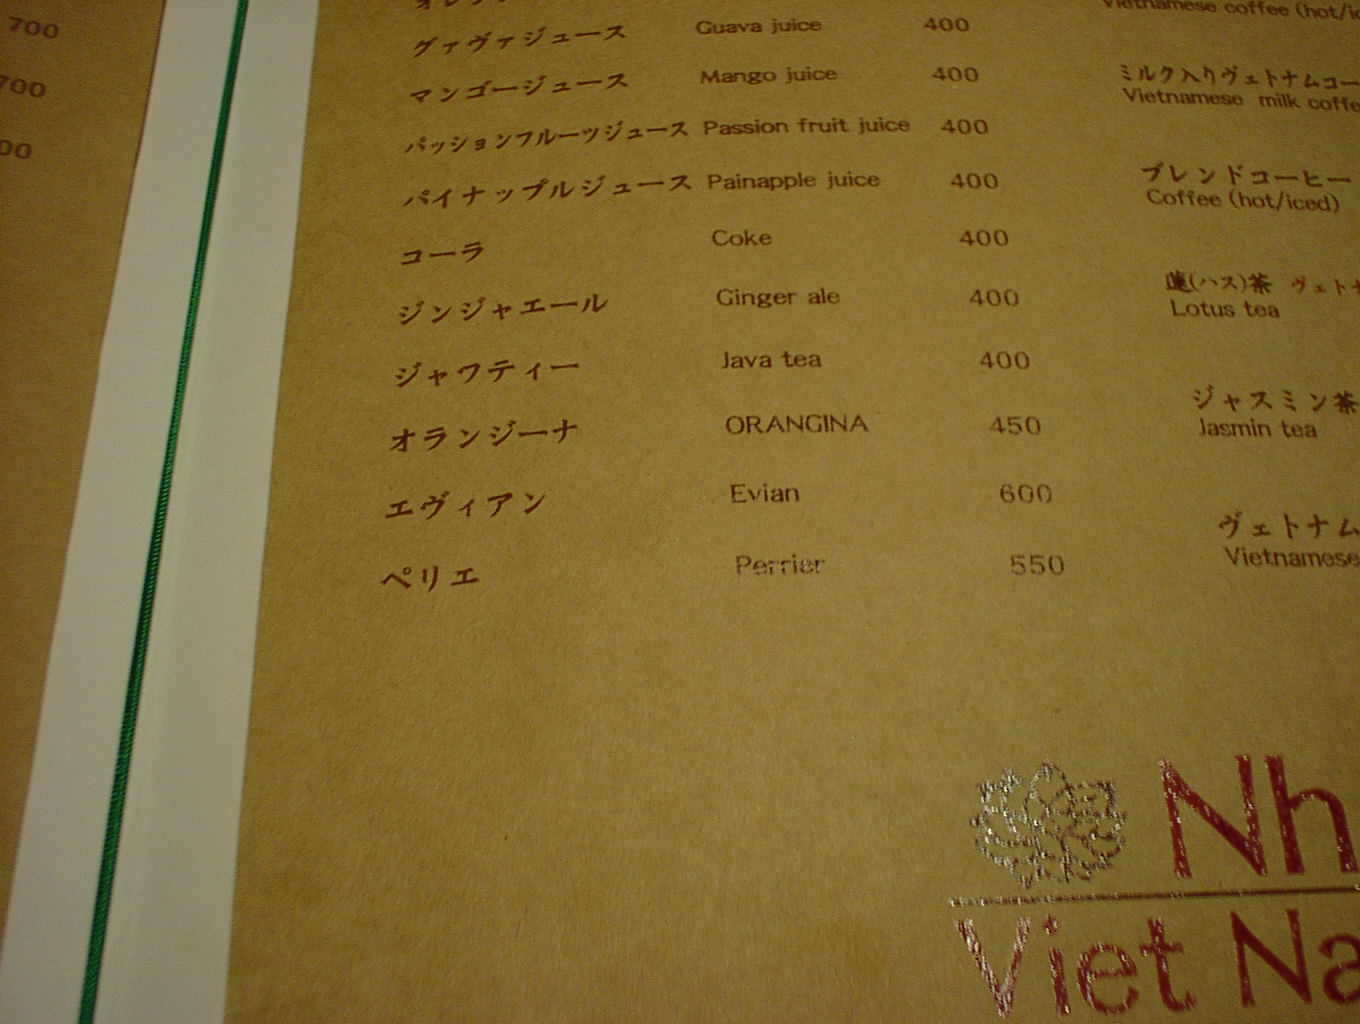 700
700
00
グァヴァジュース Guava juice 400
マンゴージュース Mango juice 400
パッションフルーツジュース Passion fruit juice 400
パイナップルジュース Painapple juice 400
コーラ Coke 400
ジンジャエール Ginger ale 400
ジャワティー Java tea 400
オランジーナ ORANGINA 450
エヴィアン Evian 600
ペリエ Perrier 550
Vietnamese coffee (hot/ic
ミルク入りヴェトナムコー
Vietnamese milk coffe
ブレンドコーヒー
Coffee (hot/iced)
蓮(ハス)茶 ヴェトナ
Lotus tea
ジャスミン茶
Jasmin tea
ヴェトナム
Vietnamese
Nh
Viet Na